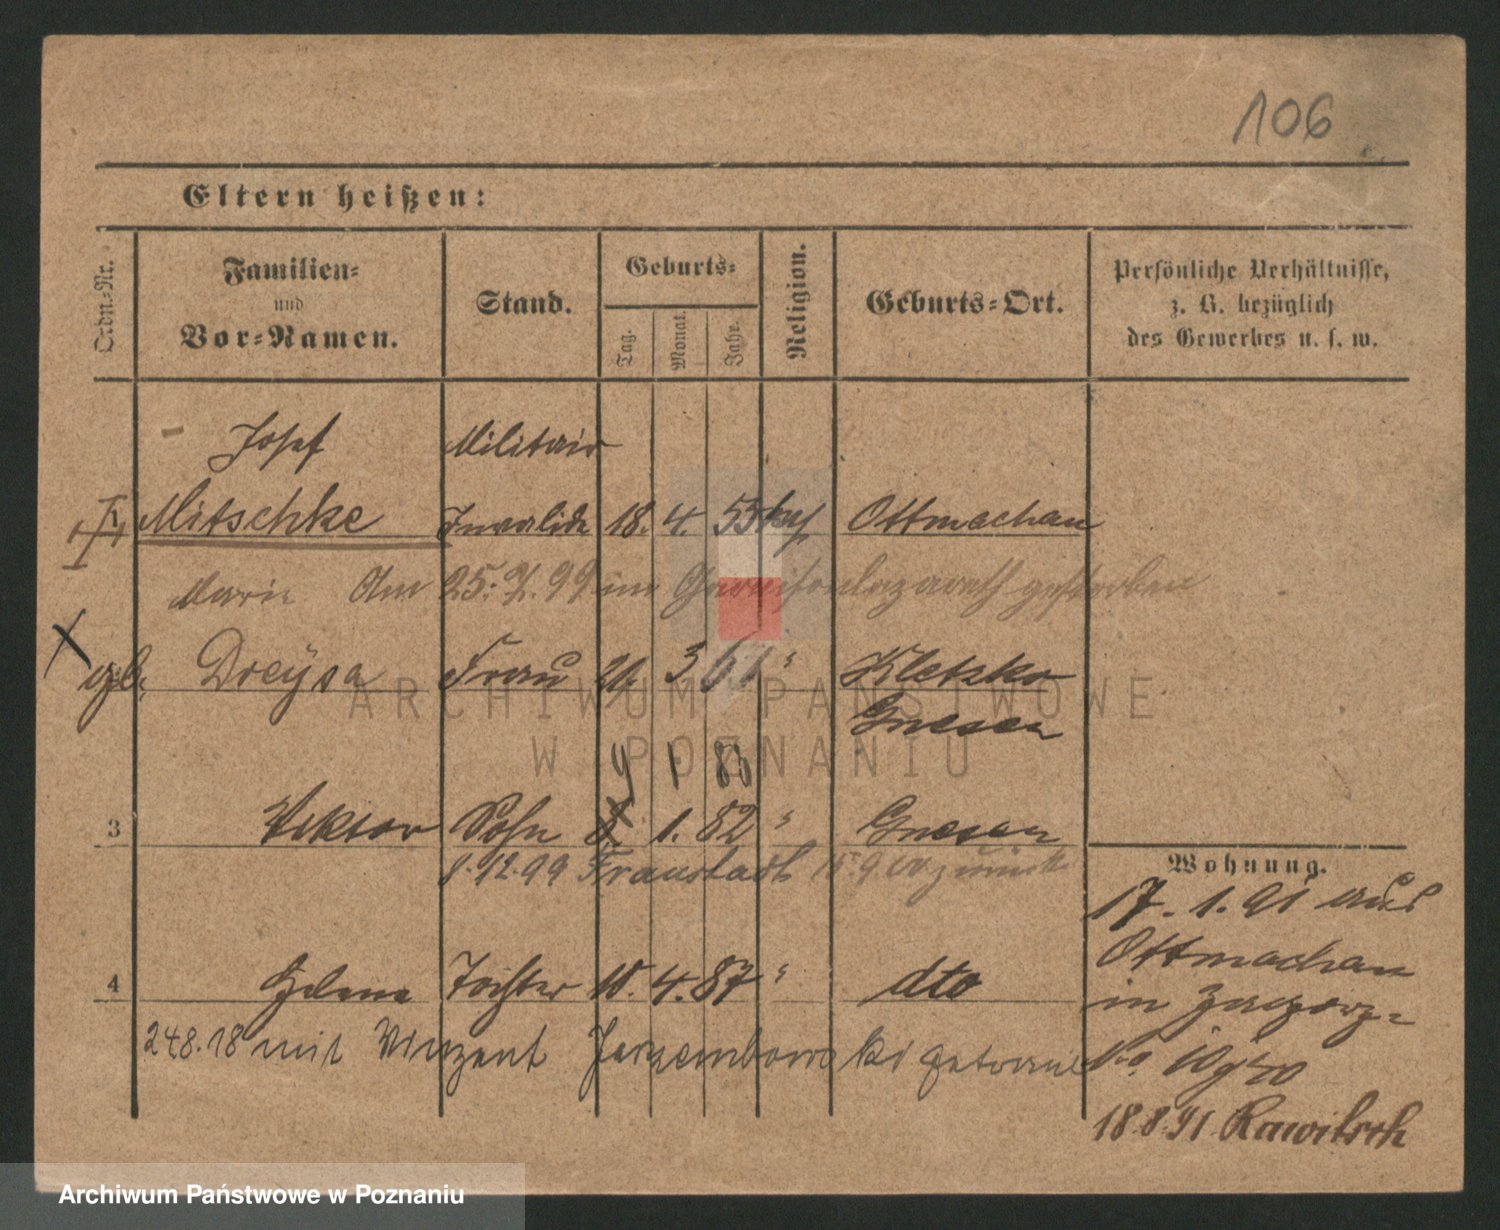 106
Eltern heißen:
Ordn.-Nr.
Familien-
und
Vor-Namen.
Stand.
Geburts-
Tag.
Monat.
Jahr.
Religion.
Geburts-Ort.
Persönliche Verhältnisse,
z. B. bezüglich
des Gewerbes u. s. w.
Josef Militair
Mitschke Invalide 18. 4. 53 kath Ottmachau
Marie Am 25. 7. 99 im Garnisonlazareth gestorben
geb. Dreÿsa Frau 21. 3 61 " Kletzko
Gnesen
9 1 83
3 Viktor Sohn 8. 1. 82 " Gnesen
8.12.99 Fraustadt 15 9 00 zurück
Wohnung.
17. 1. 91 aus
Ottmachau
4 Helene Tochter 10. 4. 87 " dto
in
24 8. 18 mit Vinzent Jarzembowski getraut
18.8.91 Rawitsch
ARCHIWUM PAŃSTWOWE
W POZNANIU
Archiwum Państwowe w Poznaniu